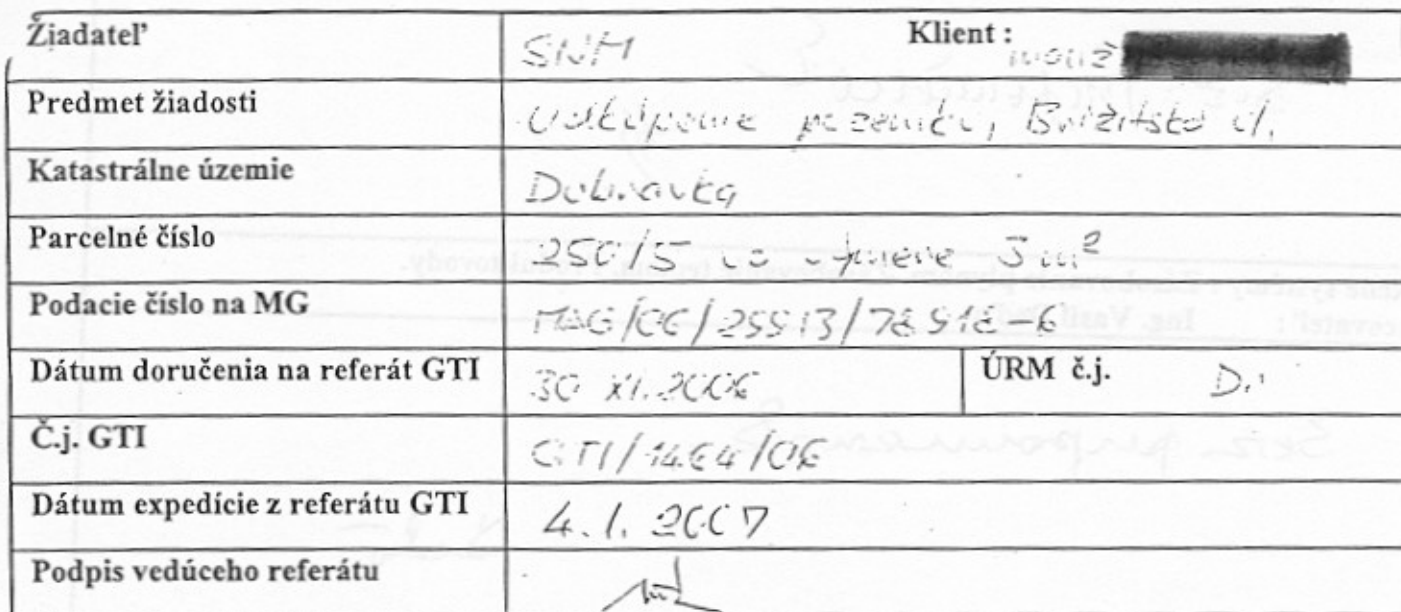 Žiadateľ SNM Klient : manž
Predmet žiadosti Odkúpenie pozemku, Brižitská ul.
Katastrálne územie Dúbravka
Parcelné číslo 250/5 vo výmere 3 m²
Podacie číslo na MG MAG/06/25513/78518-6
Dátum doručenia na referát GTI 30 XI. 2006 ÚRM č.j. D.
Č.j. GTI GTI/1464/06
Dátum expedície z referátu GTI 4. 1. 2007
Podpis vedúceho referátu